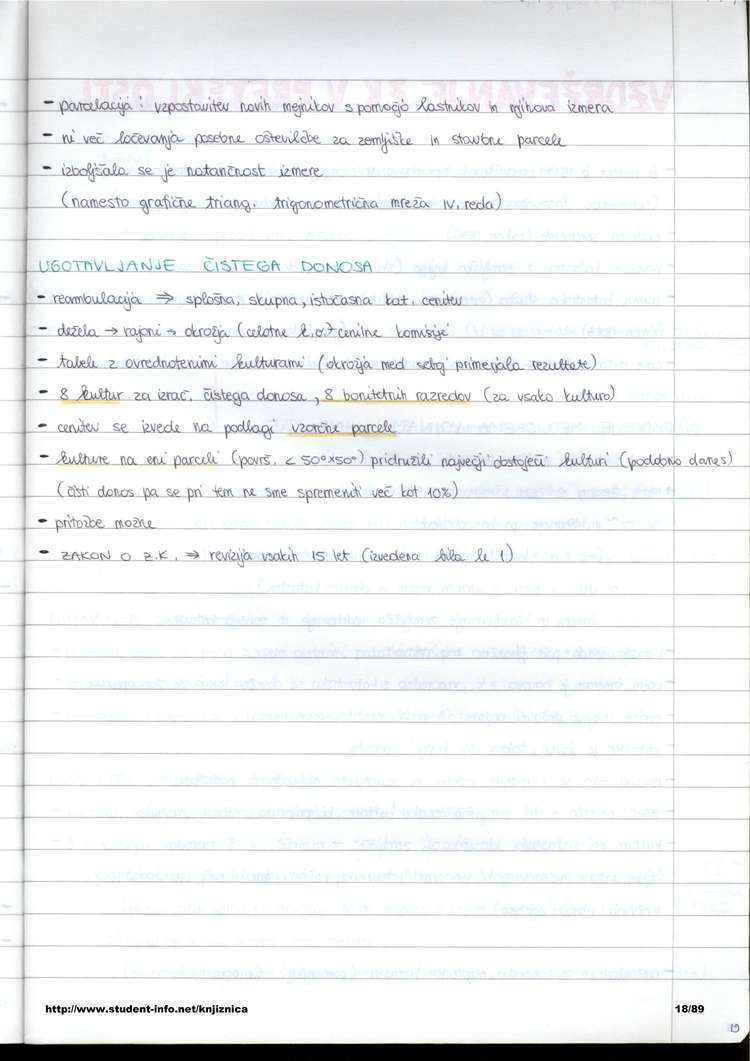 - parcelacija: vzpostavitev novih mejnikov s pomočjo lastnikov in njihova izmera
- ni več ločevanja posebne oštevilčbe za zemljiške in stavbne parcele
- izboljšala se je natančnost izmere
(namesto grafične triang. trigonometrična mreža IV. reda)
UGOTAVLJANJE ČISTEGA DONOSA
- reambulacija ⇒ splošna, skupna, istočasna kat. cenitev
- dežela → rajoni → okrožja (celotne k.o.) + cenilne komisije
- tabele z ovrednotenimi kulturami (okrožja med seboj primerjala rezultate)
- 8 kultur za izrač. čistega donosa, 8 bonitetnih razredov (za vsako kulturo)
- cenitev se izvede na podlagi vzorčne parcele
- kulture na eni parceli (površ. < 50°x50°) pridružili največji obstoječi kulturi (podobno danes)
(čisti donos pa se pri tem ne sme spremeniti več kot 10%)
- pritožbe možne
- ZAKON O Z.K. ⇒ revizija vsakih 15 let (izvedena bila le 1)
http://www.student-info.net/knjiznica 18/89